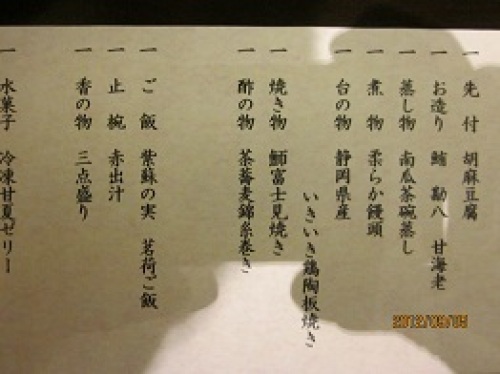 一 先付 胡麻豆腐
一 お造り 鮪 勘八 甘海老
一 蒸し物 南瓜茶碗蒸し
一 煮物 柔らか饅頭
一 台の物 静岡県産
いきいき鶏陶板焼き
一 焼き物 鰤富士見焼き
一 酢の物 茶蕎麦錦糸巻き
一 ご飯 紫蘇の実 茗荷ご飯
一 止椀 赤出汁
一 香の物 三点盛り
一 水菓子 冷凍甘夏ゼリー
2012/09/05